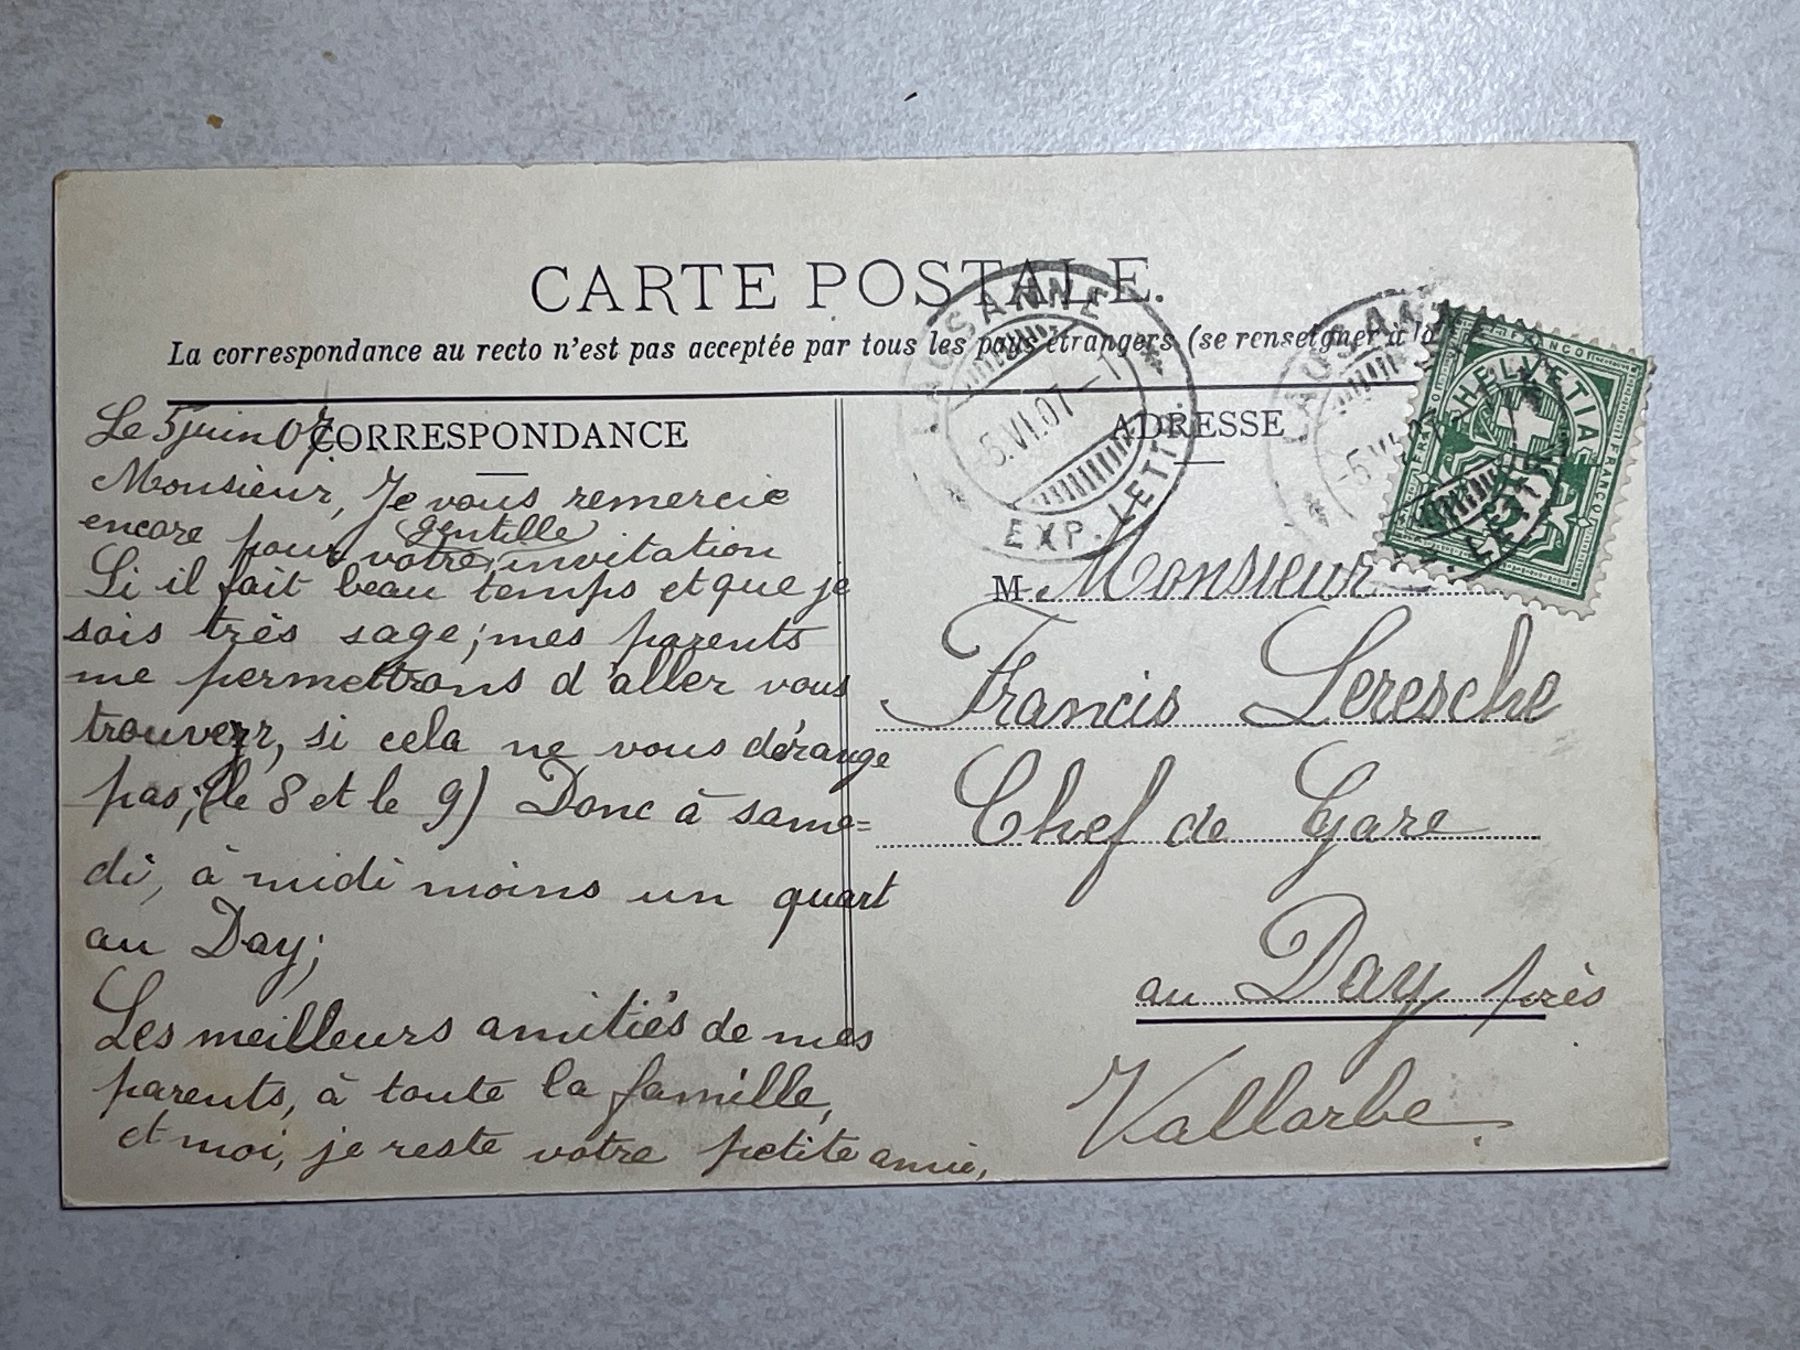 CARTE POSTALE.
La correspondance au recto n'est pas acceptée par tous les pays étrangers (se renseigner à la
CORRESPONDANCE
Le 5 juin 07.
Monsieur, Je vous remercie
encore pour votre gentille invitation
Si il fait beau temps et que je
sois très sage; mes parents
me permettrons d'aller vous
trouver, si cela ne vous dérange
pas; (le 8 et le 9) Donc à same=
di, à midi moins un quart
au Day;
Les meilleurs amitiés de mes
parents, à toute la famille,
et moi, je reste votre petite amie,
ADRESSE
M Monsieur
Francis Leresche
Chef de Gare
au Day près
Vallorbe.
LAUSANNE
-5.VI.07-1
EXP. LETTR.
LAUSANNE
-5.VI.07
LETTR.
HELVETIA
FRANCO
FRANCO
FRANCO